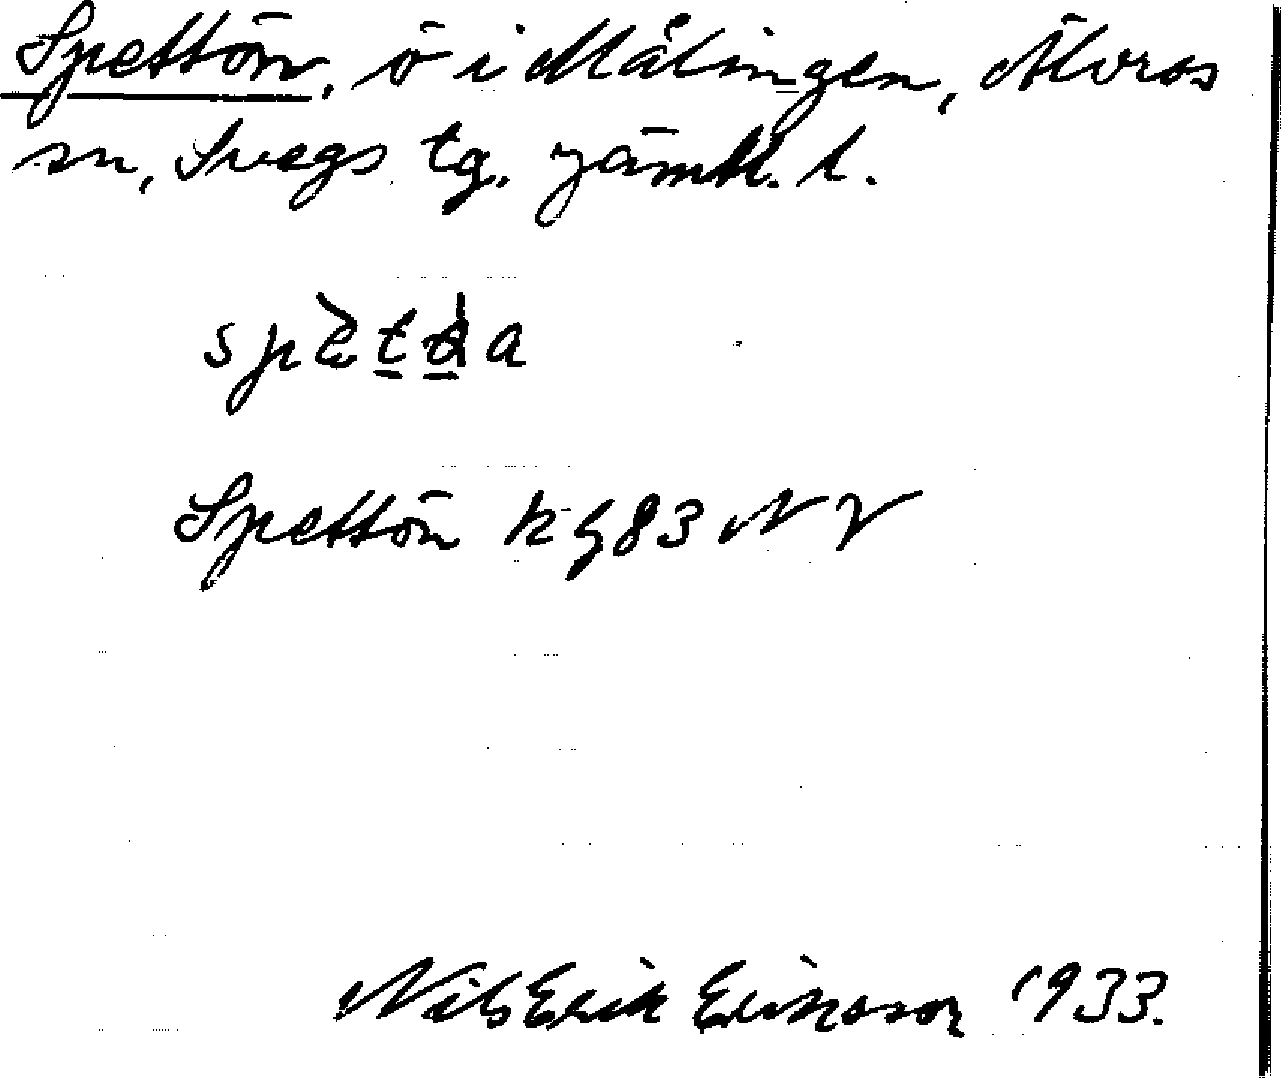 Spettön, ö i Målingen, Älvros
sn, Svegs tg. Jämtl. l.
Spettön kg 83 NV
Nils Erik Eriksson 1933.